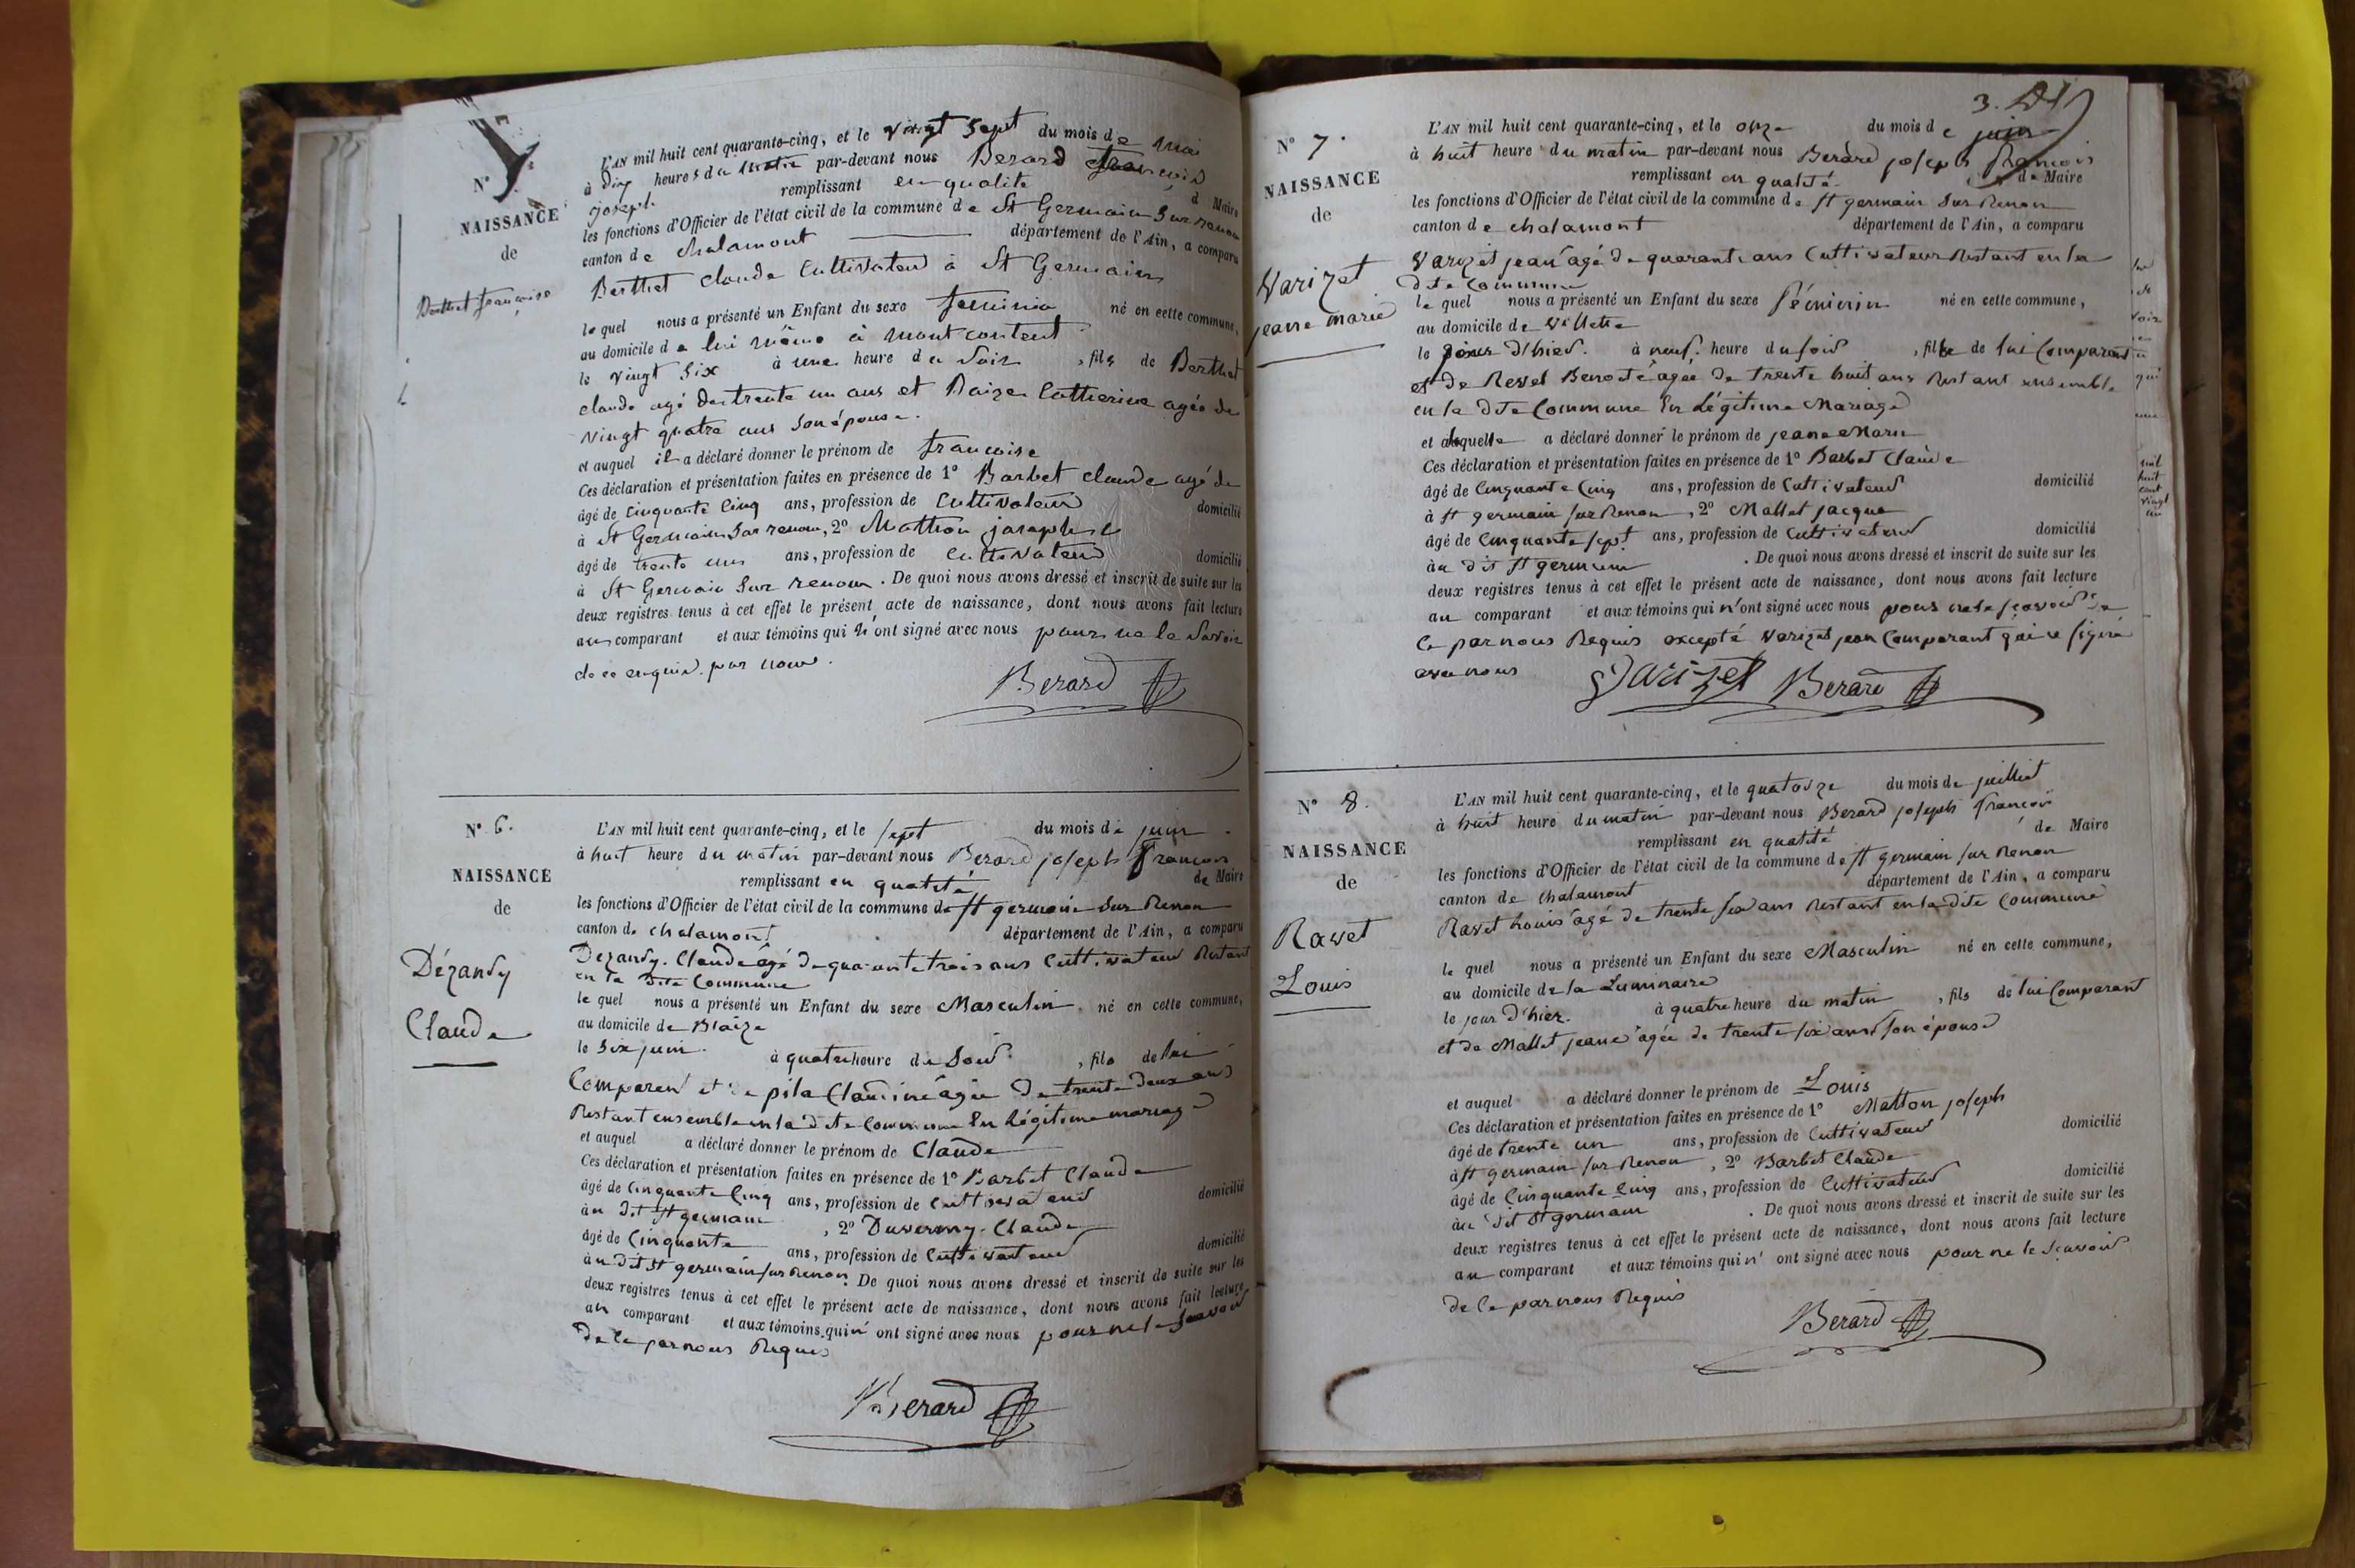 N° 5.
NAISSANCE
de
Berthet françoise
L'AN mil huit cent quarante-cinq, et le vingt sept du mois de mai
à dix heures du matin par-devant nous Berard francois
joseph remplissant en qualité d Maire
les fonctions d'Officier de l'état civil de la commune de St Germain Sur renom
canton de chalamont département de l'Ain, a comparu
Berthet claude Cultivateur à St Germain
lequel nous a présenté un Enfant du sexe feminin né en cette commune,
au domicile de lui même à mont content
le vingt six à une heure du Soir, fils de Berthet
claude agé de trente un ans et Daize Catherine agée de
vingt quatre ans Son épouse.
et auquel il a déclaré donner le prénom de francoise
Ces déclaration et présentation faites en présence de 1° Barbet claude agé de
âgé de cinquante cinq ans, profession de Cultivateur domicilié
à St Germain Sur renom, 2° Matton joseph
âgé de trente un ans, profession de Cultivateur domicilié
à St Germain Sur renom. De quoi nous avons dressé et inscrit de suite sur les
deux registres tenus à cet effet le présent acte de naissance, dont nous avons fait lecture
au comparant et aux témoins qui n'ont signé avec nous pour ne le Savoir
de ce enquis par nous.
Berard
N° 6.
NAISSANCE
de
Dézandy
Claude
L'AN mil huit cent quarante-cinq, et le sept du mois de juin
à huit heure du matin par-devant nous Berard joseph francois
remplissant en qualité de Maire
les fonctions d'Officier de l'état civil de la commune de st germain Sur Renon
canton de chalamont département de l'Ain, a comparu
Dezandy Claude âgé de quarante trois ans Cultivateur Restant
en la Dite Commune
le quel nous a présenté un Enfant du sexe Masculin né en cette commune,
au domicile de Blaize
le Six juin à quatre heure du Soir, fils de lui
Comparen et de pila Claudine âgée De trente deux ans
Restant ensemble en la dite Commune En Légitime mariage
et auquel a déclaré donner le prénom de Claude
Ces déclaration et présentation faites en présence de 1° Barbet Claude
âgé de Cinquante Cinq ans, profession de Cultivateur domicilié
au Dit st germain, 2° Duvernay Claude
âgé de Cinquante ans, profession de Cultivateur domicilié
au dit st germain sur Renon. De quoi nous avons dressé et inscrit de suite sur les
deux registres tenus à cet effet le présent acte de naissance, dont nous avons fait lecture
au comparant et aux témoins qui n' ont signé avec nous pour ne le Scavoir
De Ce par nous Requis
Berard
3.
N° 7.
NAISSANCE
de
Varizet
jeane marie
L'AN mil huit cent quarante-cinq, et le onze du mois de juin
à huit heure du matin par-devant nous Berard joseph francois
remplissant en qualité de Maire
les fonctions d'Officier de l'état civil de la commune de st germain Sur Renon
canton de chalamont département de l'Ain, a comparu
Varizet jean âgé de quarante ans Cultivateur Restant en la
dite Commune
le quel nous a présenté un Enfant du sexe féminin né en cette commune,
au domicile de Villette
le jour d'hier. à neuf heure du soir, fille de lui Comparant
et de Revel Benoite âgée De trente huit ans Restant ensemble
en la Dite Commune En Légitime Mariage
et a laquelle a déclaré donner le prénom de jeane Marie
Ces déclaration et présentation faites en présence de 1° Barbet Claude
âgé de Cinquante Cinq ans, profession de Cultivateur domicilié
à st germain sur Renon, 2° Mallet jacque
âgé de Cinquante sept ans, profession de Cultivateur domicilié
au dit st germain. De quoi nous avons dressé et inscrit de suite sur les
deux registres tenus à cet effet le présent acte de naissance, dont nous avons fait lecture
au comparant et aux témoins qui n'ont signé avec nous pour ne le scavoir De
Ce par nous Requis excepté Varizet jean Comparant qui a signé
avec nous
Varizet Berard
N° 8.
NAISSANCE
de
Ravet
Louis
L'AN mil huit cent quarante-cinq, et le quatorze du mois de juilliet
à huit heure du matin par-devant nous Berard joseph francois
remplissant en qualité de Maire
les fonctions d'Officier de l'état civil de la commune de st germain sur Renon
canton de Chalamont département de l'Ain, a comparu
Ravet Louis âgé de trente six ans Restant en la dite Commune
le quel nous a présenté un Enfant du sexe Masculin né en cette commune,
au domicile de la Luminaire
le jour d'hier. à quatre heure du matin, fils de lui Comparant
et de Mallet jeane âgée de trente six ans son épouse
et auquel a déclaré donner le prénom de Louis
Ces déclaration et présentation faites en présence de 1° Matton joseph
âgé de trente un ans, profession de Cultivateur domicilié
à st germain sur Renon, 2° Barbet Claude
âgé de Cinquante Cinq ans, profession de Cultivateur domicilié
au dit st germain. De quoi nous avons dressé et inscrit de suite sur les
deux registres tenus à cet effet le présent acte de naissance, dont nous avons fait lecture
au comparant et aux témoins qui n' ont signé avec nous pour ne le Scavoir
de Ce par nous Requis
Berard